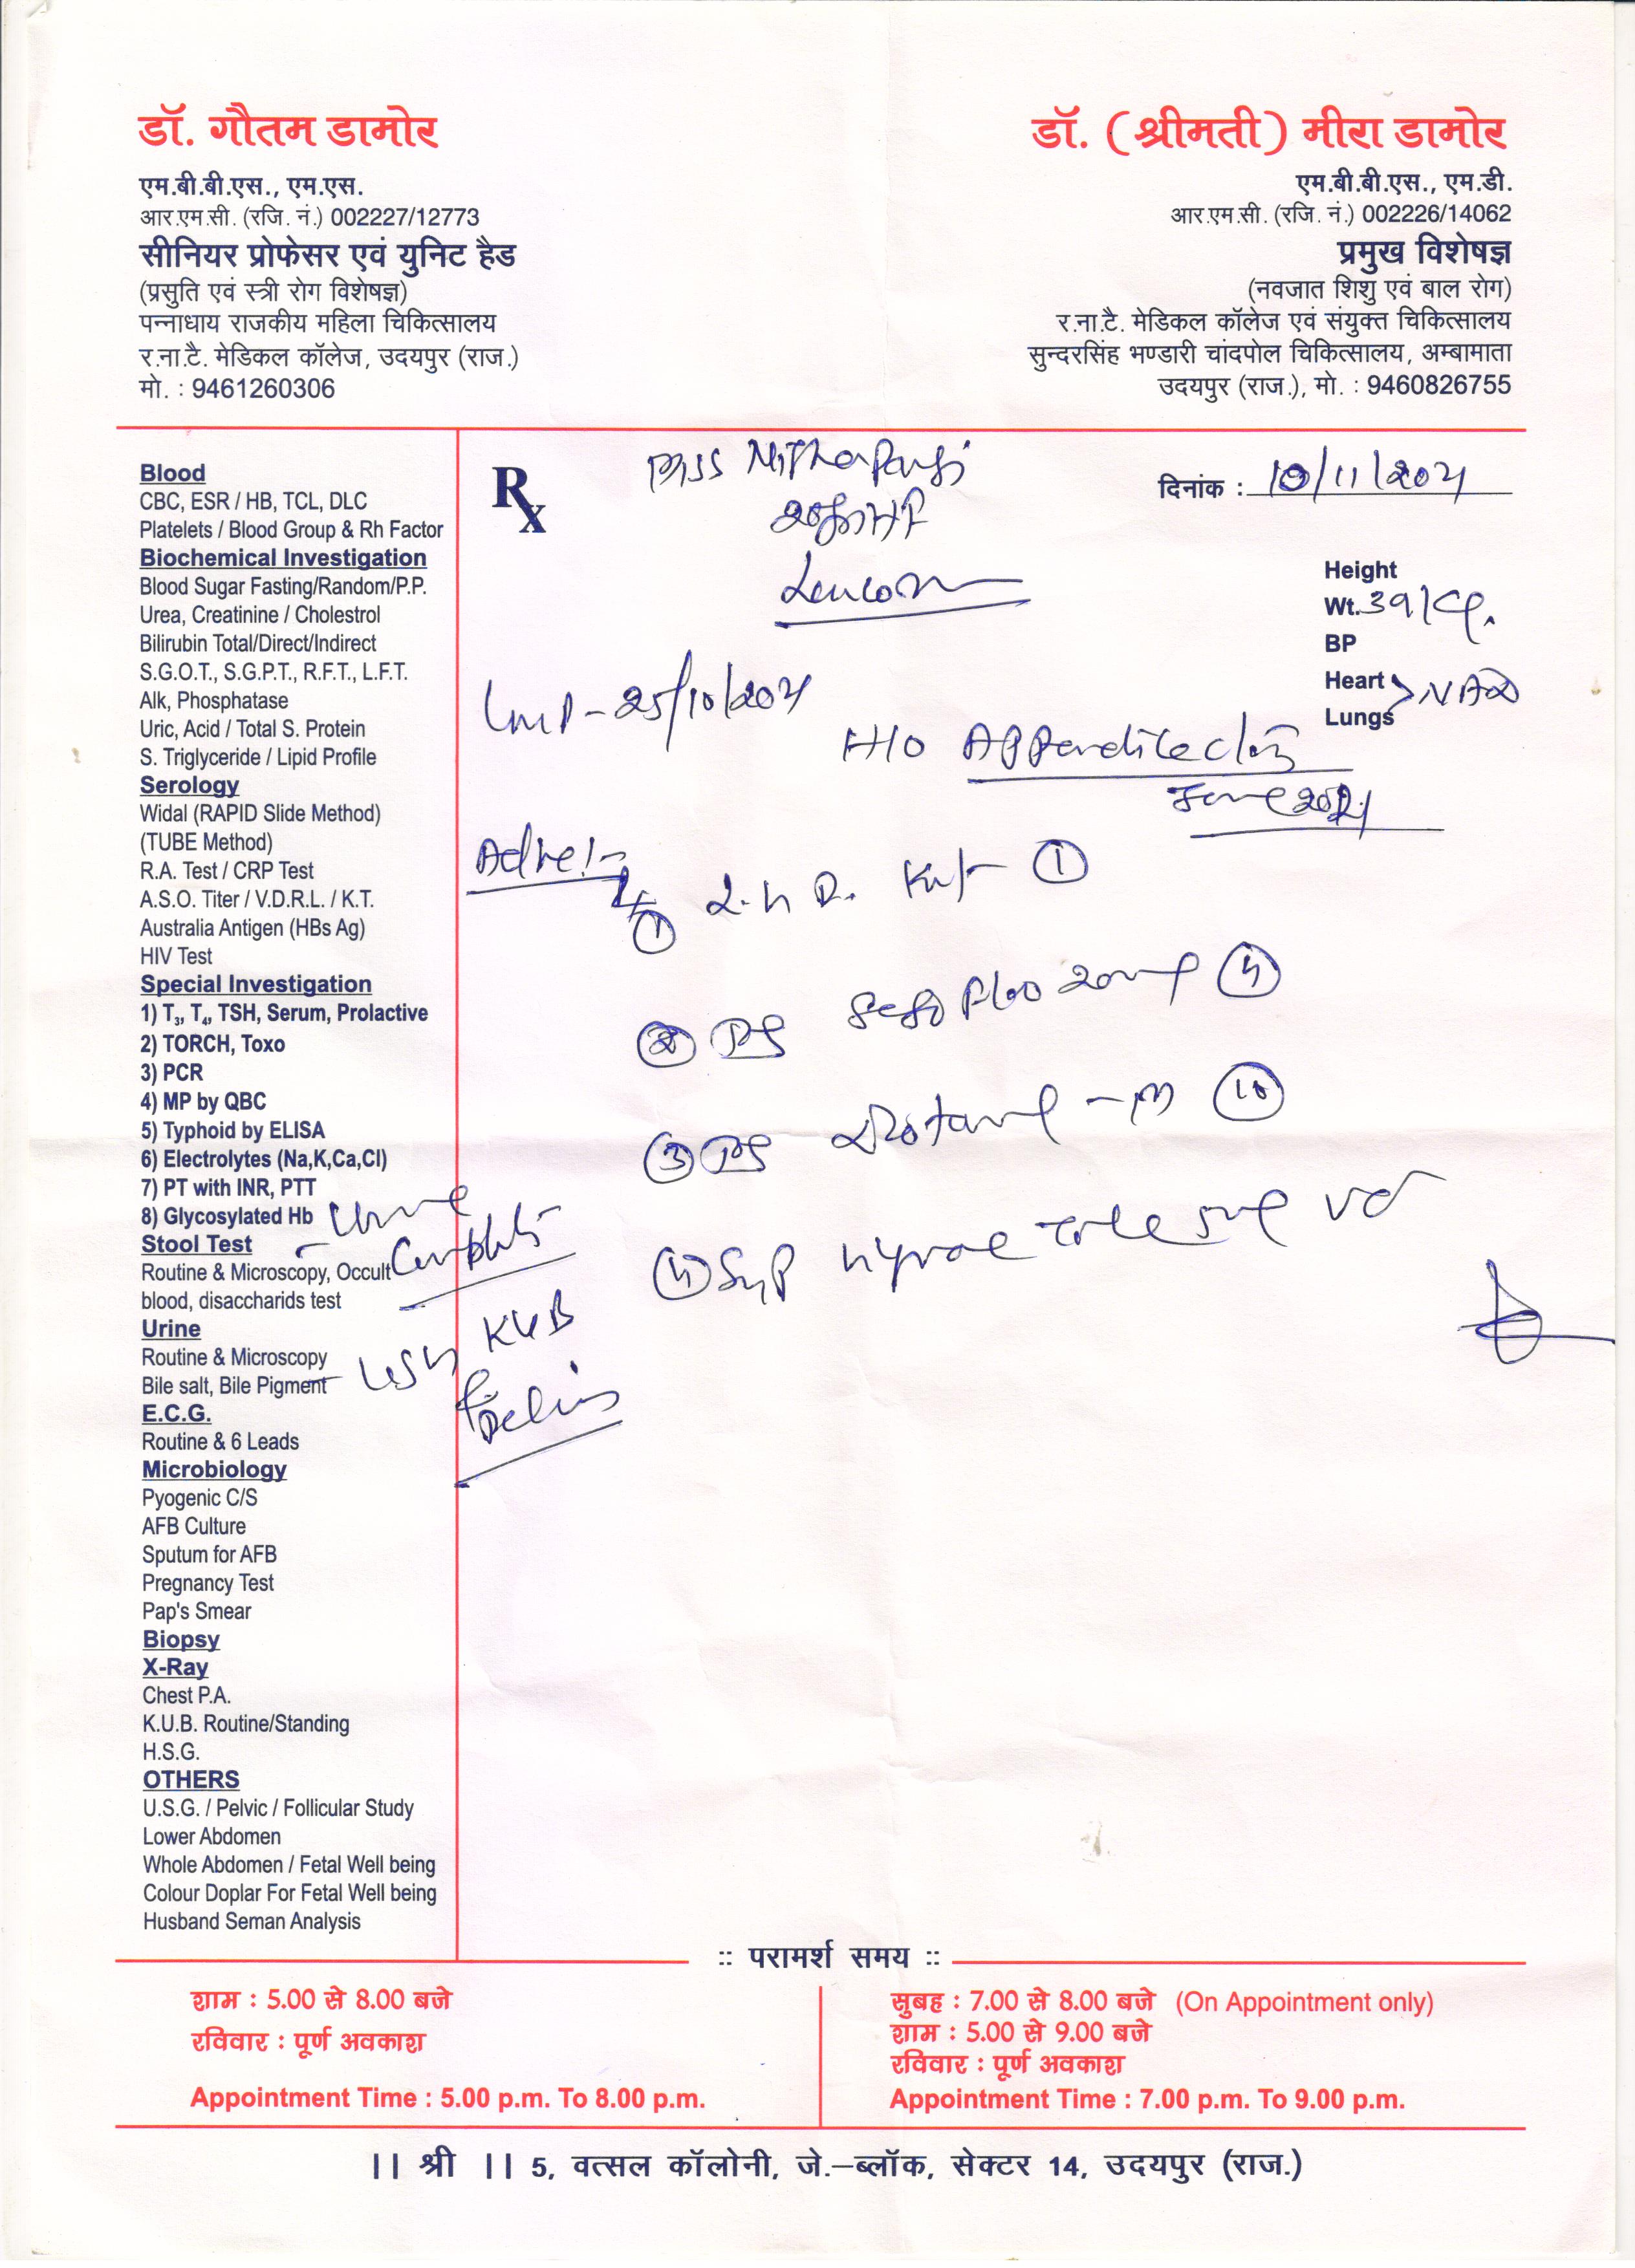 डॉ. गौतम डामोर
एम.बी.बी.एस., एम.एस.
आर.एम.सी. (रजि. नं.) 002227/12773
सीनियर प्रोफेसर एवं युनिट हैड
(प्रसुति एवं स्त्री रोग विशेषज्ञ)
पन्नाधाय राजकीय महिला चिकित्सालय
र.ना.टै. मेडिकल कॉलेज, उदयपुर (राज.)
मो. : 9461260306
डॉ. (श्रीमती) मीरा डामोर
एम.बी.बी.एस., एम.डी.
आर.एम.सी. (रजि. नं.) 002226/14062
प्रमुख विशेषज्ञ
(नवजात शिशु एवं बाल रोग)
र.ना.टै. मेडिकल कॉलेज एवं संयुक्त चिकित्सालय
सुन्दरसिंह भण्डारी चांदपोल चिकित्सालय, अम्बामाता
उदयपुर (राज.), मो. : 9460826755
Blood
CBC, ESR / HB, TCL, DLC
Platelets / Blood Group & Rh Factor
Biochemical Investigation
Blood Sugar Fasting/Random/P.P.
Urea, Creatinine / Cholestrol
Bilirubin Total/Direct/Indirect
S.G.O.T., S.G.P.T., R.F.T., L.F.T.
Alk, Phosphatase
Uric, Acid / Total S. Protein
S. Triglyceride / Lipid Profile
Serology
Widal (RAPID Slide Method)
(TUBE Method)
R.A. Test / CRP Test
A.S.O. Titer / V.D.R.L. / K.T.
Australia Antigen (HBs Ag)
HIV Test
Special Investigation
1) T3, T4, TSH, Serum, Prolactive
2) TORCH, Toxo
3) PCR
4) MP by QBC
5) Typhoid by ELISA
6) Electrolytes (Na,K,Ca,Cl)
7) PT with INR, PTT
8) Glycosylated Hb
Stool Test
Routine & Microscopy, Occult
blood, disaccharids test
Urine
Routine & Microscopy
Bile salt, Bile Pigment
E.C.G.
Routine & 6 Leads
Microbiology
Pyogenic C/S
AFB Culture
Sputum for AFB
Pregnancy Test
Pap's Smear
Biopsy
X-Ray
Chest P.A.
K.U.B. Routine/Standing
H.S.G.
OTHERS
U.S.G. / Pelvic / Follicular Study
Lower Abdomen
Whole Abdomen / Fetal Well being
Colour Doplar For Fetal Well being
Husband Seman Analysis
- Urine
KUB
Pelvis
Rx
Miss
दिनांक :
Height
Wt. 39
BP
Heart
Lungs > NAD
LMP -
H/O
June
①
② 20mg
③ - M 10
Syp
:: परामर्श समय ::
शाम : 5.00 से 8.00 बजे
रविवार : पूर्ण अवकाश
Appointment Time : 5.00 p.m. To 8.00 p.m.
सुबह : 7.00 से 8.00 बजे (On Appointment only)
शाम : 5.00 से 9.00 बजे
रविवार : पूर्ण अवकाश
Appointment Time : 7.00 p.m. To 9.00 p.m.
|| श्री || 5, वत्सल कॉलोनी, जे.–ब्लॉक, सेक्टर 14, उदयपुर (राज.)